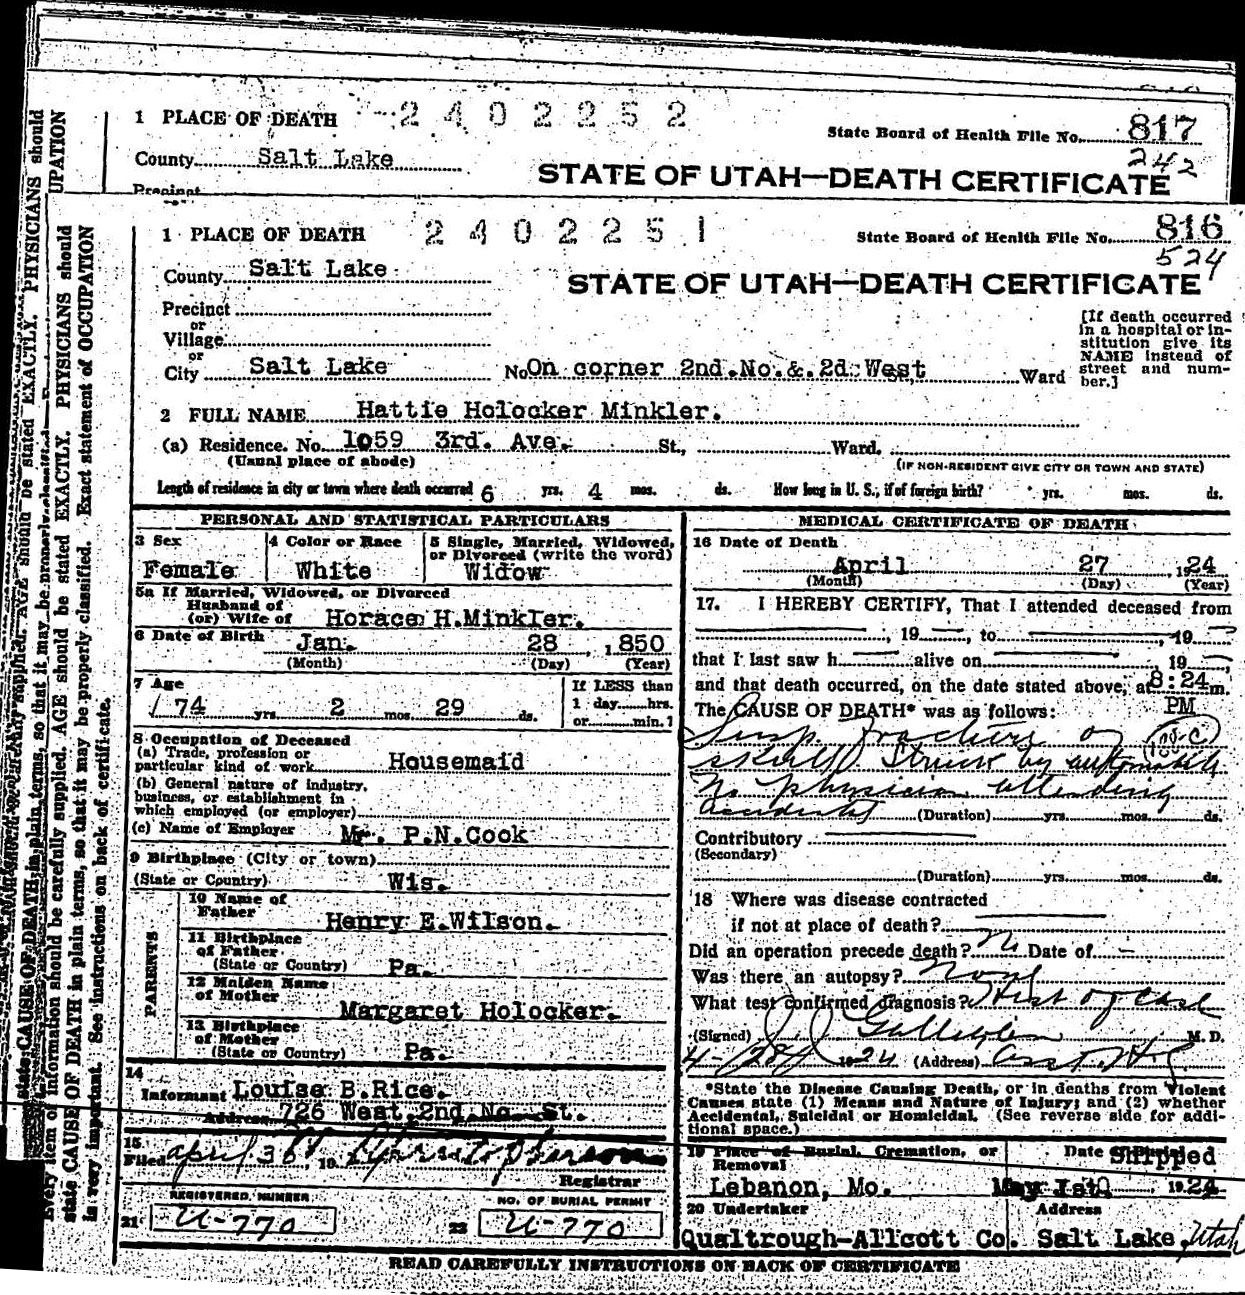 1 PLACE OF DEATH 2402252
State Board of Health File No. 817
242
County Salt Lake
STATE OF UTAH—DEATH CERTIFICATE
Precinct
1 PLACE OF DEATH 2402251
State Board of Health File No. 816
524
County Salt Lake
STATE OF UTAH—DEATH CERTIFICATE
Precinct
or
Village
or
City Salt Lake No. On corner 2nd. No. & 2d. West Ward
[If death occurred
in a hospital or in-
stitution give its
NAME instead of
street and num-
ber.]
2 FULL NAME Hattie Holocker Minkler.
(a) Residence. No. 1059 3rd. Ave. St., Ward.
(Usual place of abode) (IF NON-RESIDENT GIVE CITY OR TOWN AND STATE)
Length of residence in city or town where death occurred 6 yrs. 4 mos. ds. How long in U. S., if of foreign birth? yrs. mos. ds.
PERSONAL AND STATISTICAL PARTICULARS
3 Sex
Female
4 Color or Race
White
5 Single, Married, Widowed,
or Divorced (write the word)
Widow
5a If Married, Widowed, or Divorced
Husband of
(or) Wife of Horace H. Minkler.
6 Date of Birth Jan. 28, 1850
(Month) (Day) (Year)
7 Age
74 yrs. 2 mos. 29 ds.
If LESS than
1 day hrs.
or min.?
8 Occupation of Deceased
(a) Trade, profession or
particular kind of work Housemaid
(b) General nature of industry,
business, or establishment in
which employed (or employer)
(c) Name of Employer Mr. P.N.Cook
9 Birthplace (City or town)
(State or Country) Wis.
PARENTS
10 Name of
Father Henry E. Wilson.
11 Birthplace
of Father
(State or Country) Pa.
12 Maiden Name
of Mother Margaret Holocker.
13 Birthplace
of Mother
(State or Country) Pa.
14
Informant Louise B. Rice.
Address 726 West. 2nd. No. St.
15
Filed April 30 19
Registrar
REGISTERED NUMBER
21 U-770
NO. OF BURIAL PERMIT
22 U-770
MEDICAL CERTIFICATE OF DEATH
16 Date of Death
April 27 1924
(Month) (Day) (Year)
17. I HEREBY CERTIFY, That I attended deceased from
, 19 , to , 19
that I last saw h alive on , 19
and that death occurred, on the date stated above, at 8:24 m.
PM
The CAUSE OF DEATH* was as follows:
fracture of
skull. Struck by automobile
No physician attending
accidental (Duration) yrs. mos. ds.
Contributory
(Secondary)
(Duration) yrs. mos. ds.
18 Where was disease contracted
if not at place of death?
Did an operation precede death? No Date of -
Was there an autopsy? None
What test confirmed diagnosis? Hist of case
(Signed) M. D.
4-28 1924 (Address)
*State the Disease Causing Death, or in deaths from Violent
Causes state (1) Means and Nature of Injury; and (2) whether
Accidental, Suicidal or Homicidal. (See reverse side for addi-
tional space.)
19 Place of Burial, Cremation, or
Removal
Lebanon, Mo.
Date Shipped
May 1st. 1924
20 Undertaker
Qualtrough-Allcott Co.
Address
Salt Lake, Utah
READ CAREFULLY INSTRUCTIONS ON BACK OF CERTIFICATE
Every item of information should be carefully supplied. AGE should be stated EXACTLY. PHYSICIANS should
state CAUSE OF DEATH in plain terms, so that it may be properly classified. Exact statement of OCCUPATION
is very important. See instructions on back of certificate.